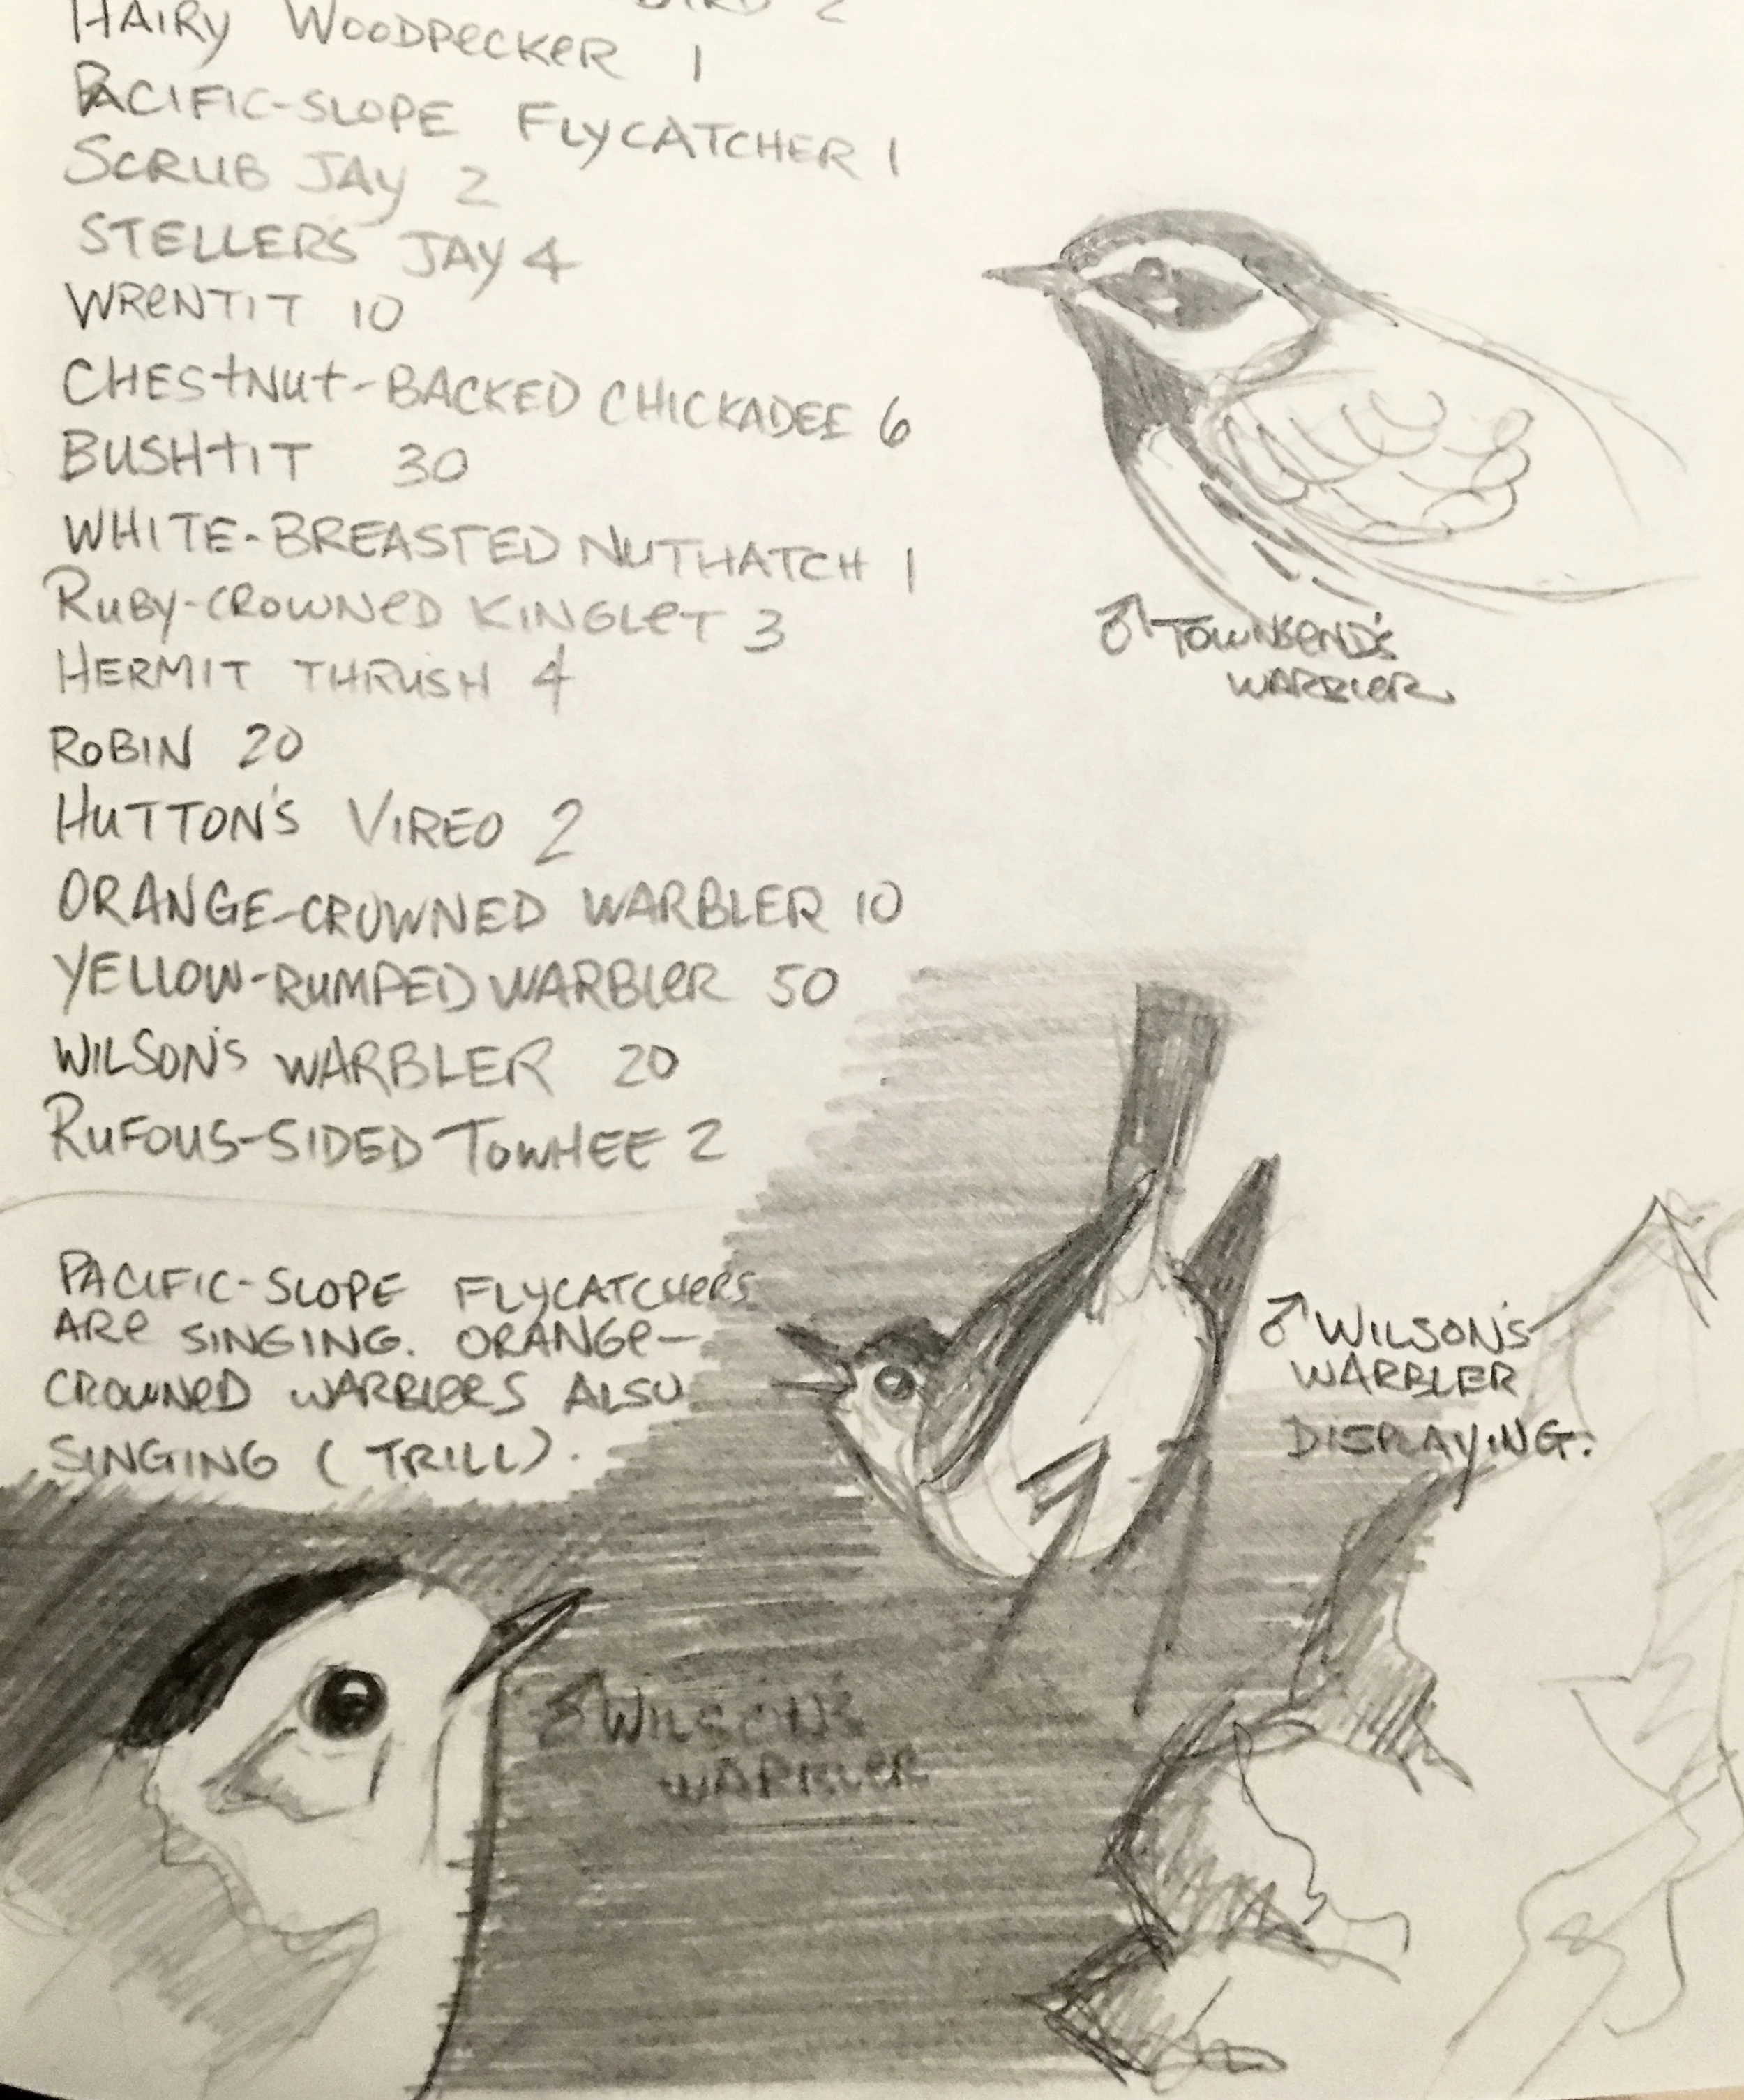 HAIRY WOODPECKER 1
PACIFIC-SLOPE FLYCATCHER 1
SCRUB JAY 2
STELLERS JAY 4
WRENTIT 10
CHESTNUT-BACKED CHICKADEE 6
BUSHTIT 30
WHITE-BREASTED NUTHATCH 1
RUBY-CROWNED KINGLET 3
HERMIT THRUSH 4
ROBIN 20
HUTTON'S VIREO 2
ORANGE-CROWNED WARBLER 10
YELLOW-RUMPED WARBLER 50
WILSON'S WARBLER 20
RUFOUS-SIDED TOWHEE 2
♂ TOWNSEND'S
WARBLER
PACIFIC-SLOPE FLYCATCHERS
ARE SINGING. ORANGE-
CROWNED WARBLERS ALSO
SINGING (TRILL).
♂ WILSON'S
WARBLER
DISPLAYING.
♂ WILSON'S
WARBLER